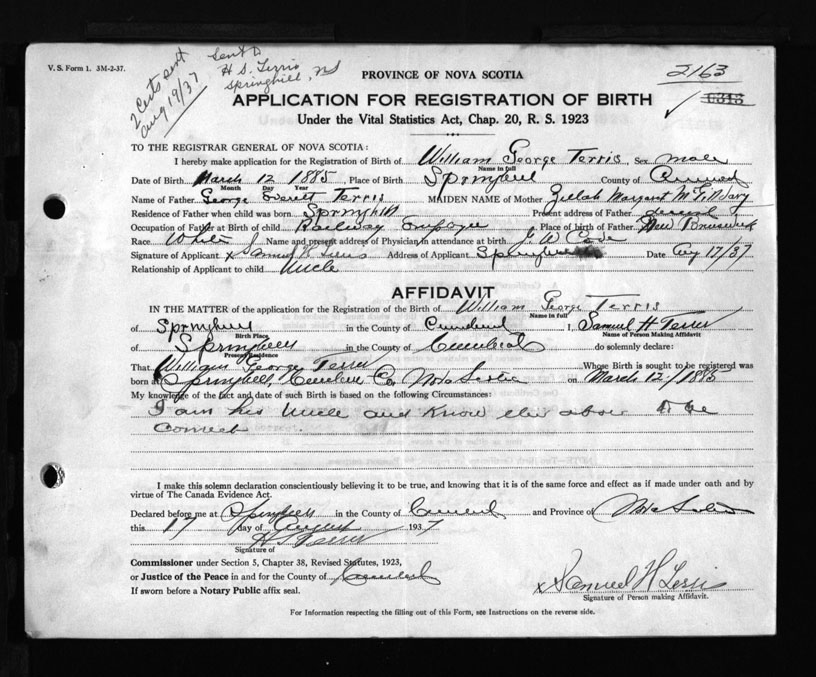 V. S. Form 1. 3M-2-37.
2 Certs sent
Aug 19/37
Sent to
H S. Terris
Springhill, NS
2163
PROVINCE OF NOVA SCOTIA
APPLICATION FOR REGISTRATION OF BIRTH
Under the Vital Statistics Act, Chap. 20, R. S. 1923
TO THE REGISTRAR GENERAL OF NOVA SCOTIA:
I hereby make application for the Registration of Birth of William George Terris Sex male
Name in full
Date of Birth March 12 1885 Place of Birth Springhill County of
Month Day Year
Name of Father George Everett Terris MAIDEN NAME of Mother Margaret
Residence of Father when child was born Springhill Present address of Father
Occupation of Father at Birth of child Railway Employee Place of Birth of Father New Brunswick
Race White Name and present address of Physician in attendance at birth J. W.
Signature of Applicant x Samuel H Terris Address of Applicant Springhill Date Aug 17/37
Relationship of Applicant to child Uncle
AFFIDAVIT
IN THE MATTER of the application for the Registration of the Birth of William George Terris
Name in full
of Springhill in the County of I, Samuel H Terris
Birth Place Name of Person Making Affidavit
of Springhill in the County of do solemnly declare:
Present Residence
That William George Terris Whose Birth is sought to be registered was
born at Springhill, Co Nova Scotia on March 12/1885
My knowledge of the fact and date of such Birth is based on the following Circumstances:
I am his Uncle and Know the above to be
Correct
I make this solemn declaration conscientiously believing it to be true, and knowing that it is of the same force and effect as if made under oath and by
virtue of The Canada Evidence Act.
Declared before me at Springhill in the County of and Province of Nova Scotia
this 17 day of August 1937
H S Terris
Signature of
Commissioner under Section 5, Chapter 38, Revised Statutes, 1923,
or Justice of the Peace in and for the County of
If sworn before a Notary Public affix seal.
x Samuel H Terris
Signature of Person making Affidavit.
For Information respecting the filling out of this Form, see Instructions on the reverse side.